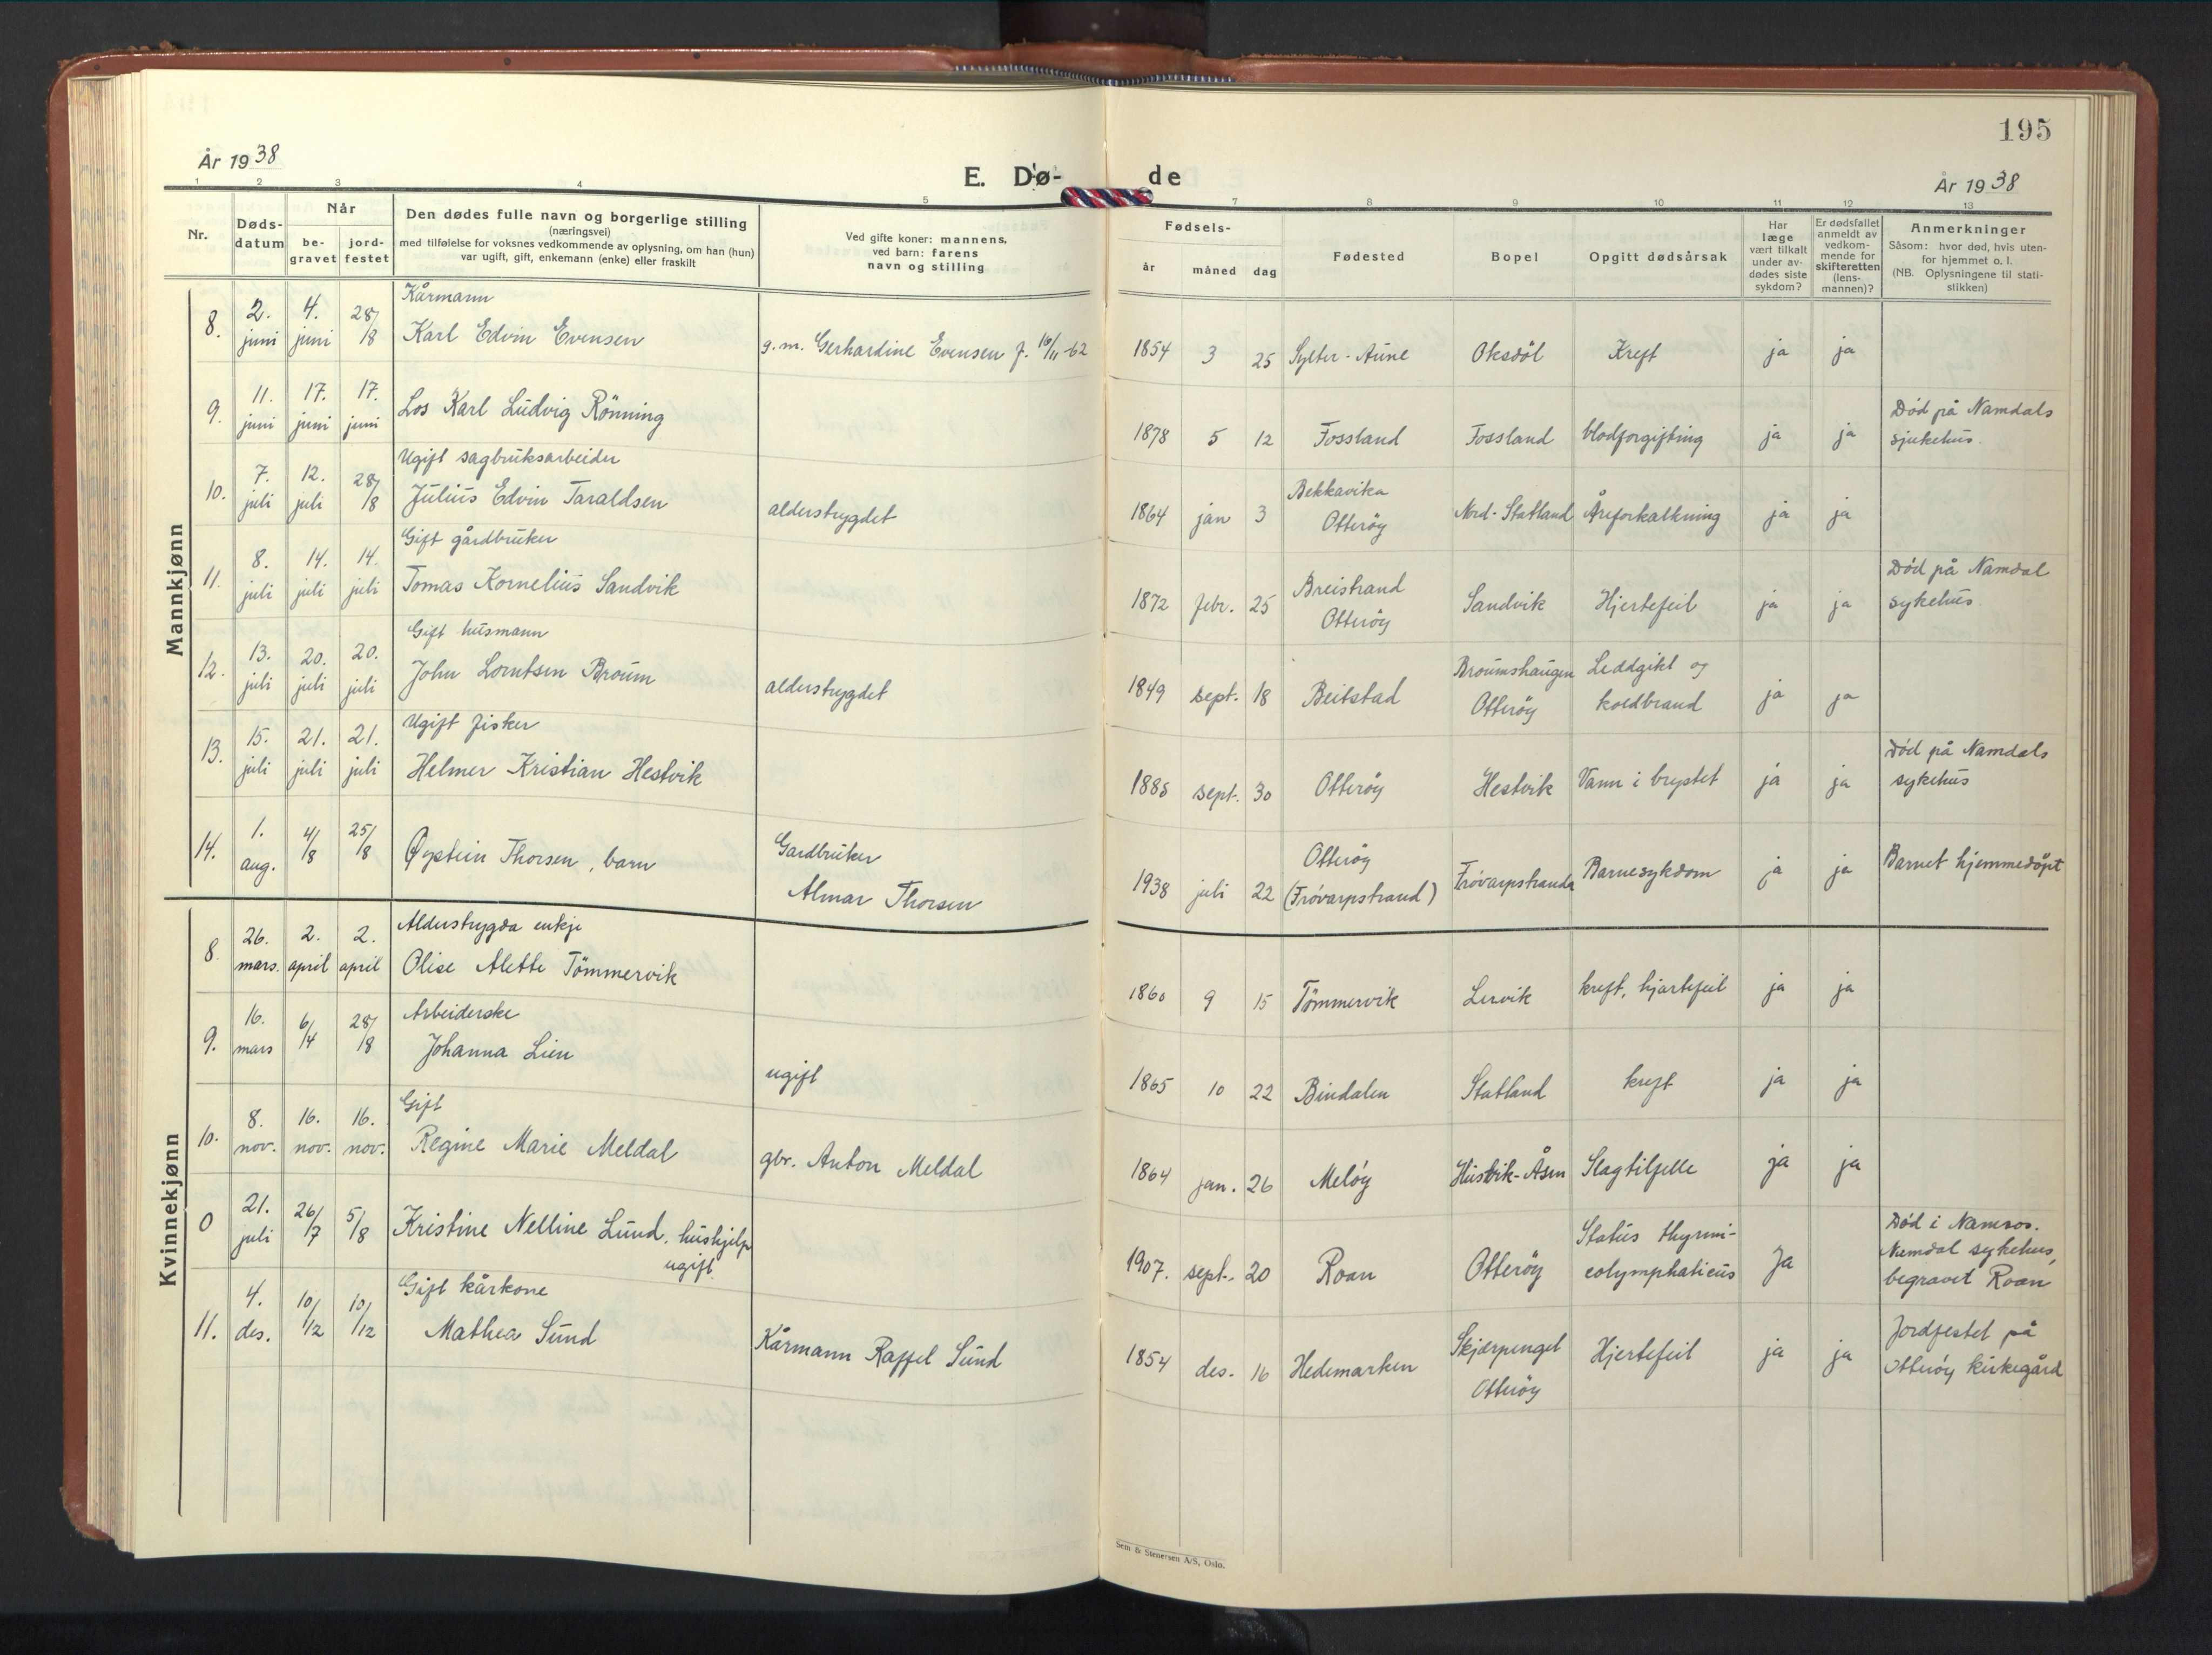 195
År 1938
E. Dø-
de
År 1938
1 2 3 4 5 7 8 9 10 11 12 13
Nr.
Døds-
datum
Når
be-
gravet
jord-
festet
Den dødes fulle navn og borgerlige stilling
(næringsvei)
med tilføielse for voksnes vedkommende av oplysning, om han (hun)
var ugift, gift, enkemann (enke) eller fraskilt
Ved gifte koner: mannens,
ved barn: farens
navn og stilling
Fødsels-
år måned dag
Fødested
Bopel
Opgitt dødsårsak
Har
læge
vært tilkalt
under av-
dødes siste
sykdom?
Er dødsfallet
anmeldt av
vedkom-
mende for
skifteretten
(lens-
mannen)?
Anmerkninger
Såsom: hvor død, hvis uten-
for hjemmet o. l.
(NB. Oplysningene til stati-
stikken)
Mannkjønn
Kårmann
8. 2. juni 4. juni 28/8 Karl Edvin Evensen g. m. Gerhardine Evensen f. 16/11-62 1854 3 25 Sylter-Aune Oksdöl Kreft ja ja
9. 11. juni 17. juni 17. juni Los Karl Ludvig Rönning 1878 5 12 Fossland Fossland blodforgifting ja ja Död på Namdals
sjukehus.
Ugift sagbruksarbeider
10. 7. juli 12. juli 28/8 Julius Edvin Taraldsen alderstrygdet 1864 jan 3 Bekkavika
Otteröy Nord-Statland Åreforkalkning ja ja
Gift gårdbruker
11. 8. juli 14. juli 14. juli Tomas Kornelius Sandvik 1872 febr. 25 Breistrand
Otteröy Sandvik Hjertefeil ja ja Död på Namdal
sykehus
Gift husmann
12. 13. juli 20. juli 20. juli John Lorntsen Broum alderstrygdet 1849 sept. 18 Beitstad Broumshaugen
Otteröy Leddgikt og
koldbrand ja ja
Ugift fisker
13. 15. juli 21. juli 21. juli Helmer Kristian Hestvik 1888 sept. 30 Otteröy Hestvik Vann i brystet ja ja Död på Namdals
sykehus
14. 1. aug. 4/8 25/8 Øystein Thorsen, barn Gardbruker
Almar Thorsen 1938 juli 22 Otteröy
(Frövarpstrand) Frövarpstranda Barnesykdom ja ja Barnet hjemmedöpt
Kvinnekjønn
Alderstrygda enkje
8 26. mars. 2. april 2. april Olise Alette Tömmervik 1860 9 15 Tömmervik Lervik kreft, hjartefeil ja ja
Arbeiderske
9. 16. mars 6/4 28/8 Johanna Lien ugift 1865 10 22 Bindalen Statland kreft ja ja
Gift
10. 8. nov. 16. nov. 16. nov. Regine Marie Meldal gbr. Anton Meldal 1864 jan. 26 Melöy Husvik-Åsen Slagtilfelle ja ja
0 21. juli 26/7 5/8 Kristine Nelline Lund, hushjelp
ugift 1907. sept. 20 Roan Otteröy Status thymi-
colymphaticus Ja Död i Namsos.
Namdal sykehus,
begravet Roan
Gift kårkone
11. 4. des. 10/12 10/12 Mathea Sund Kårmann Raffel Sund 1854 des. 16 Hedemarken Skjærpenget
Otteröy Hjertefeil ja ja Jordfestet på
Otteröy kirkegård
Sem & Stenersen A/S, Oslo.